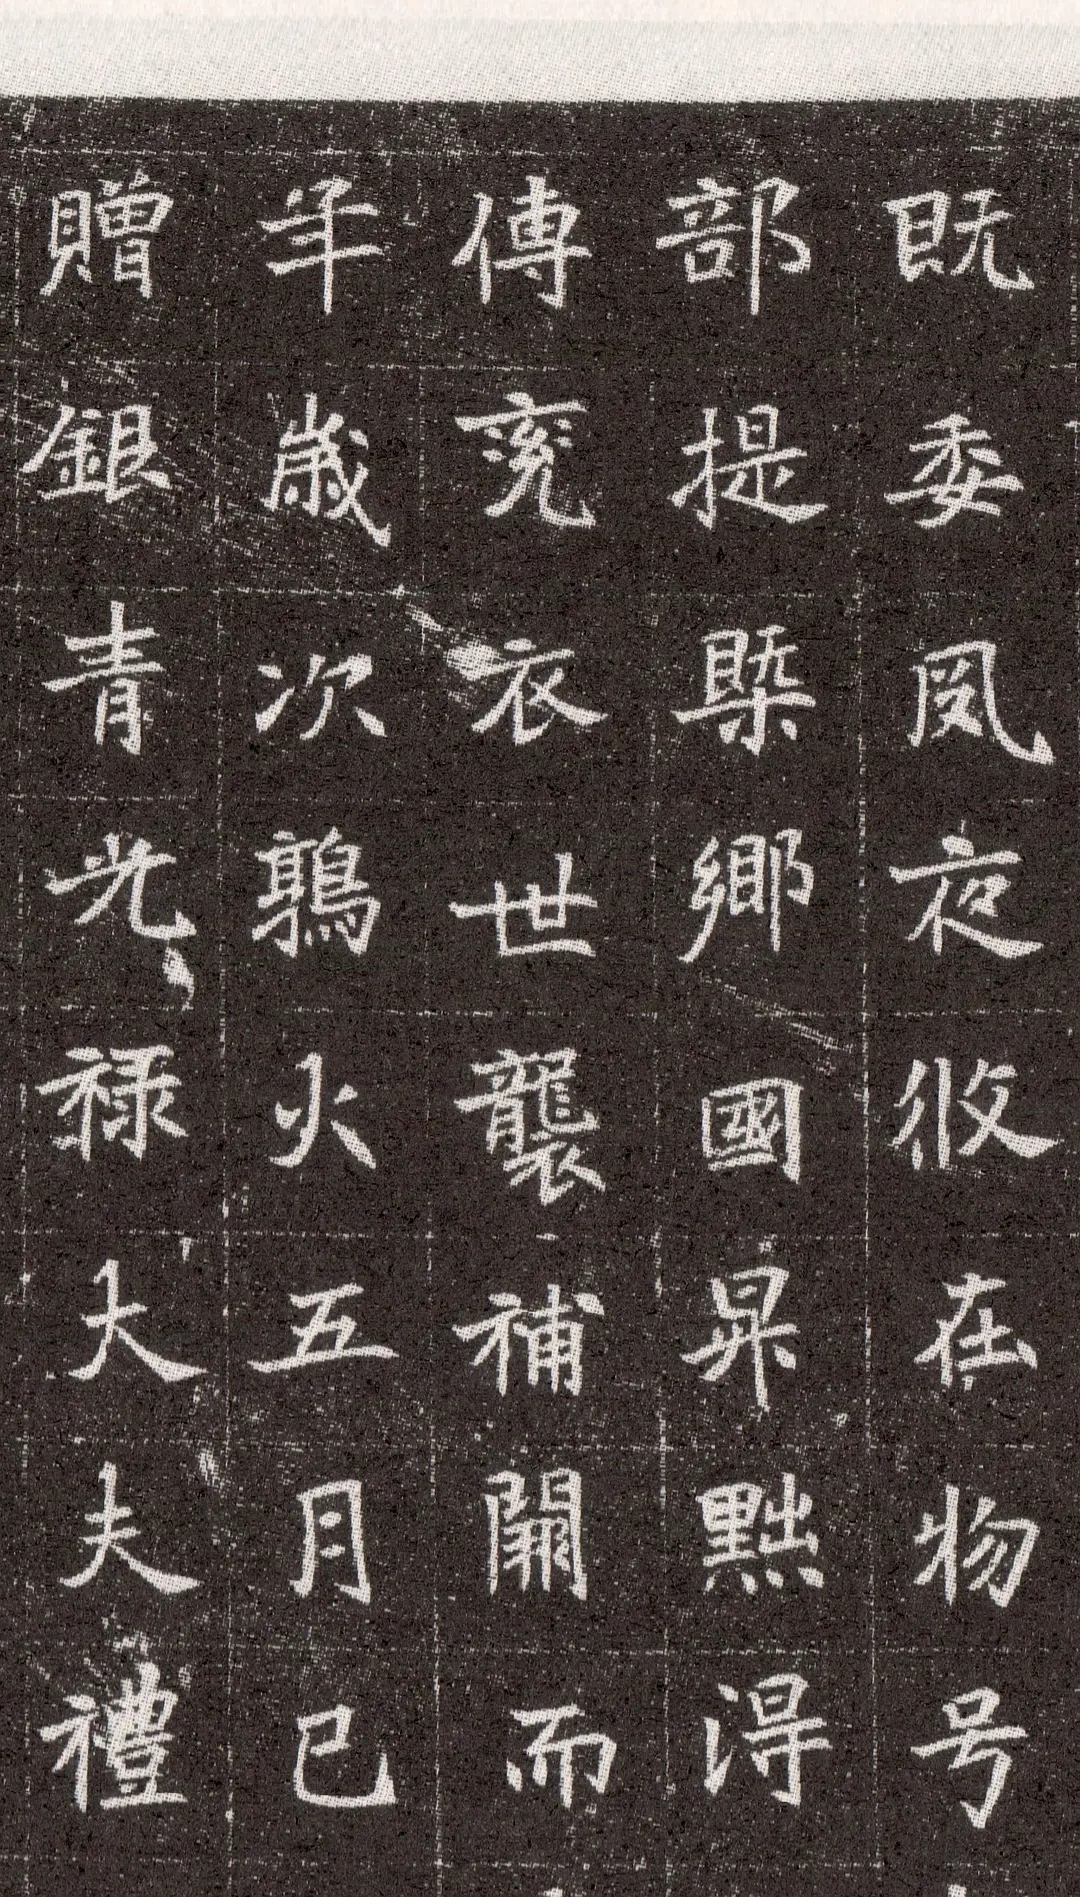 既委夙夜攸在物号
部提槩鄉國昇黜淂
傅兖衣世襲補闕而
年歲次鶉火五月己
贈銀青光禄大夫禮